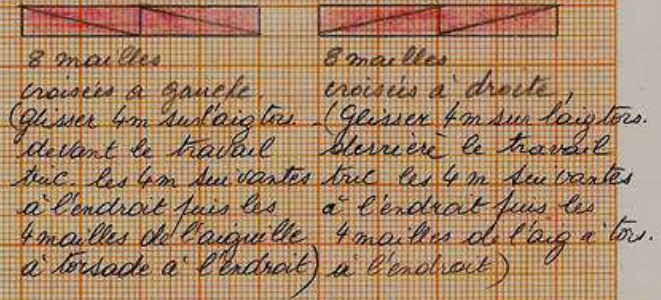 8 mailles
croisées a gauche.
(glisser 4m sur l'aig tors.
devant le travail
tric. les 4m suivantes
à l'endroit puis les
4 mailles de l'aiguille
à torsade à l'endroit)
8 mailles
croisées à droite,
(Glisser 4m sur l'aig tors.
derrière le travail
tric les 4 m suivantes
à l'endroit puis les
4 mailles de l'aig à tors.
à l'endroit)